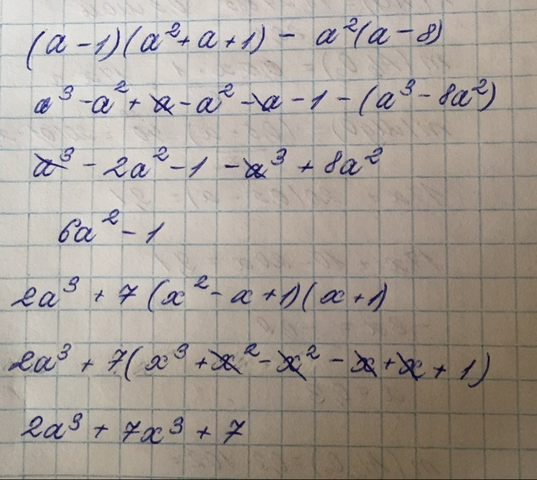 (a - 1)(a² + a + 1) - a²(a - 8)
a³ - a² + a - a² - a - 1 - (a³ - 8a²)
a³ - 2a² - 1 - a³ + 8a²
6a² - 1
2a³ + 7(x² - x + 1)(x + 1)
2a³ + 7(x³ + x² - x² - x + x + 1)
2a³ + 7x³ + 7